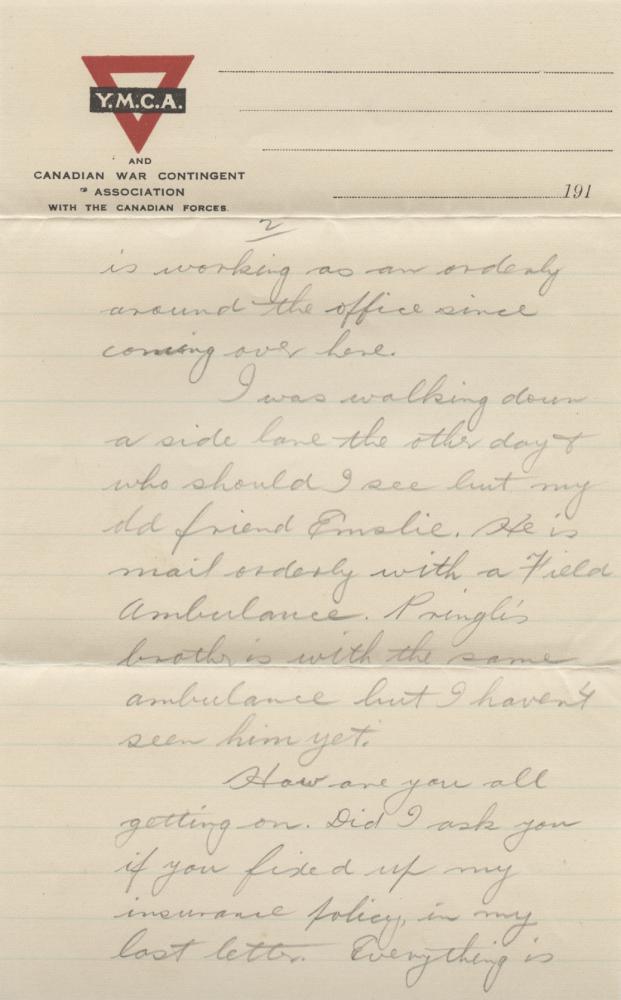 Y.M.C.A.
AND
CANADIAN WAR CONTINGENT
ASSOCIATION
WITH THE CANADIAN FORCES.
191
2
is working as an orderly
around the office since
coming over here.
I was walking down
a side lane the other day &
who should I see but my
old friend Emslie. He is
mail orderly with a Field
Ambulance. Pringle's
brother is with the same
ambulance but I haven't
seen him yet.
How are you all
getting on. Did I ask you
if you fixed up my
insurance policy, in my
last letter. Everything is